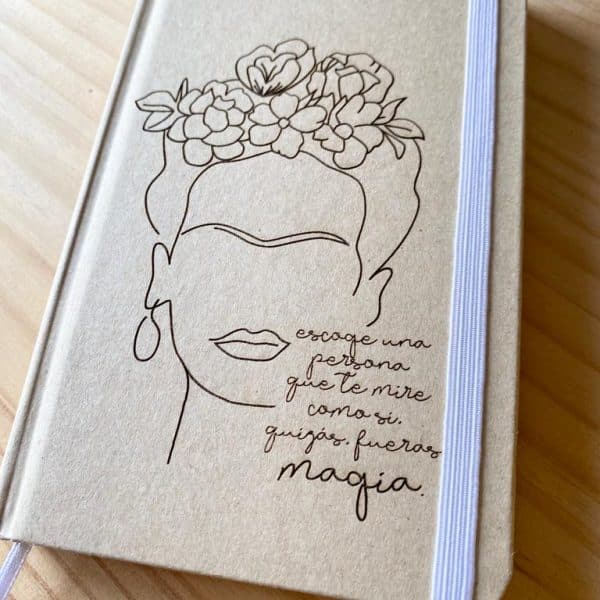 escoge una
persona
que te mire
como si,
quizás, fueras
magia.